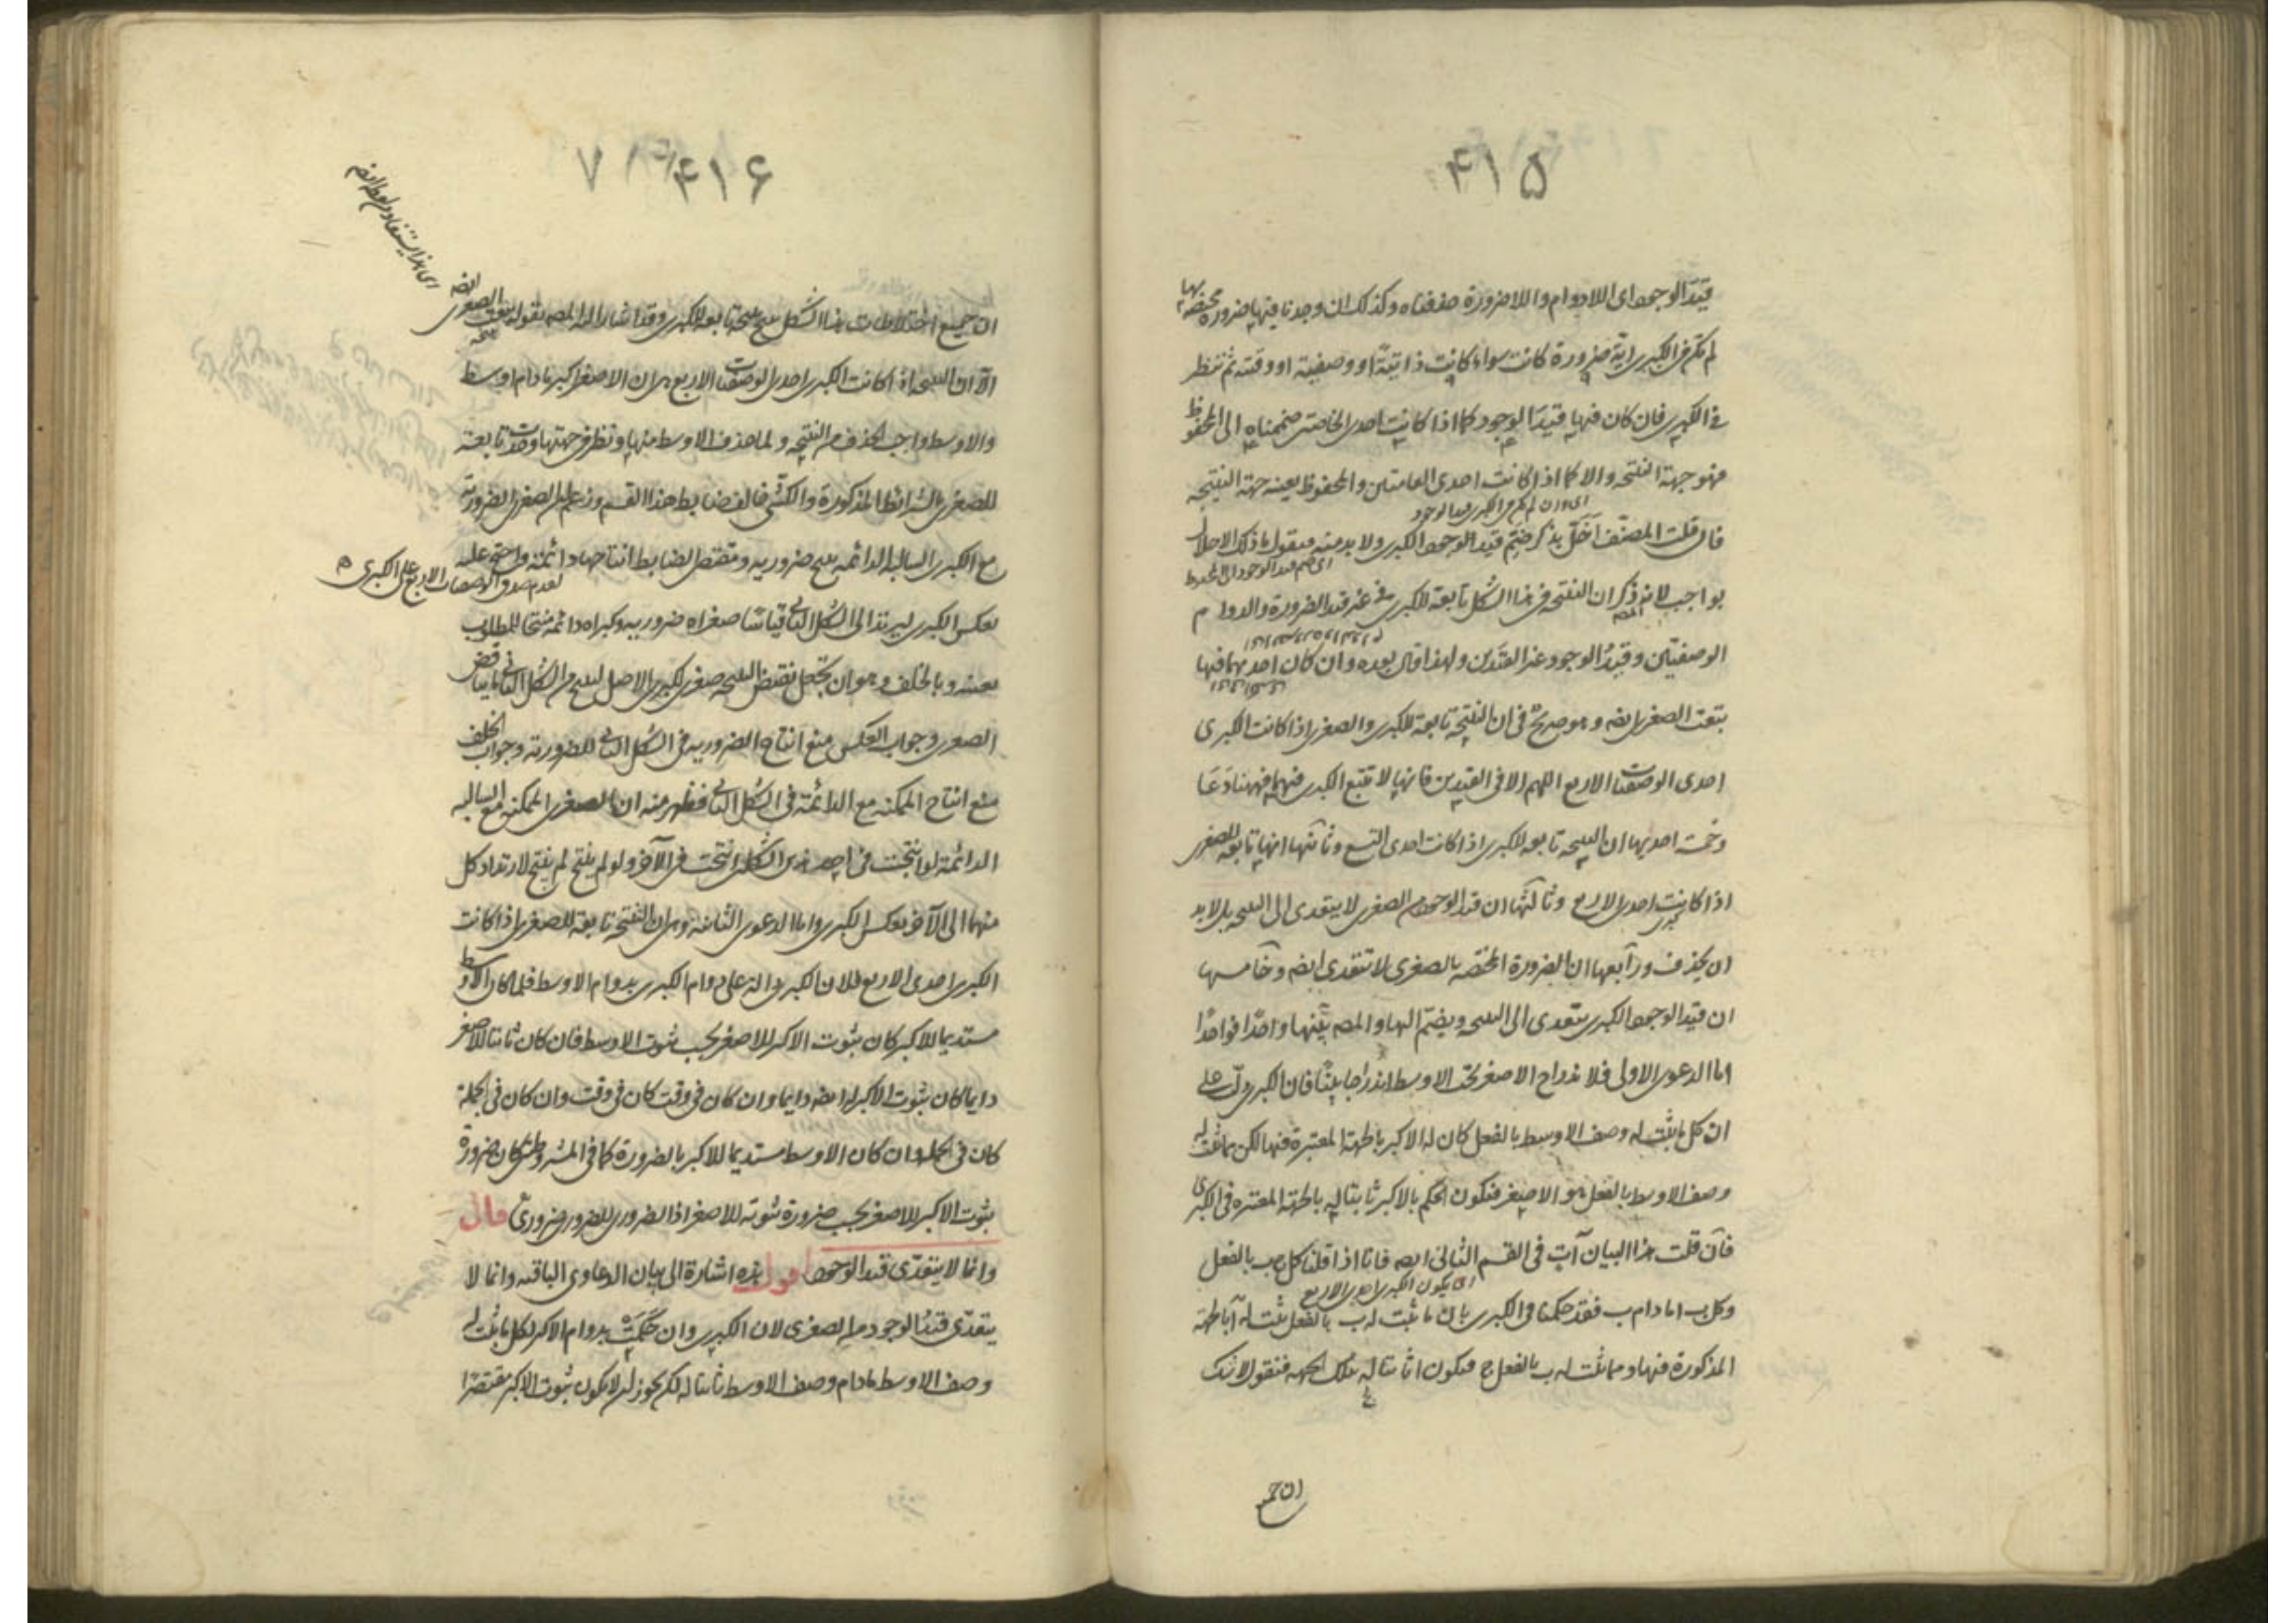 ۴۱۵
قيد الوجود اى اللادوام واللاضرورة حذفناه وكذلك ان وجدنا فيها ضرورة مختصة بها
لم تكن فى الكبرى اية ضرورة كانت سواء كانت ذاتية او وصفية او وقتية ثم ننظر
فى الكبرى فان كان فيها قيد الوجود كما اذا كانت احدى الخاصتين ضممناه الى المحفوظ
فهو جهة النتيجة والا كما اذا كانت احدى العامتين والمحفوظ بعينه جهة النتيجة
اى وان لم يكن فى الكبرى قيد الوجود
فان قلت المصنف اخل بذكر ضم قيد الوجود الكبرى ولا بد منه فنقول ما ذلك الاخلال
اى ضم قيد الوجود الى المحفوظ
بواجب لانه ذكر ان النتيجة فى هذا الشكل تابعة للكبرى فى غير قيد الضرورة والدوام
المصه
الوصفيتين وقيد الوجود غير القيدين ولهذا قال بعده وان كان احديهما فيها
تبعت الصغرى ايضه وهو صريح فى ان النتيجة تابعة للكبرى والصغرى اذا كانت الكبرى
احدى الوصفيات الاربع اللهم الا فى القيدين فانها لا تتبع الكبرى فيهما فههنا دعا
وخمسة احديها ان النتيجة تابعة للكبرى اذا كانت احدى التسع وثانيتها انها تابعة للصغرى
اذا كانت احدى الاربع وثالثتها ان قيد الوجود من الصغرى لا يتعدى الى النتيجة بل لا بد
ان يحذف ورابعها ان الضرورة المختصة بالصغرى لا تتعدى ايضه وخامسها
ان قيد الوجود الكبرى يتعدى الى النتيجة ويضم اليها والمصه بينها واحدا فواحدا
اما الدعوى الاولى فلاندراج الاصغر تحت الاوسط اندراجا بينا فان الكبرى دلت على
ان كل ما ثبت له وصف الاوسط بالفعل كان له الاكبر بالجهة المعتبرة فيها لكن مما ثبت له
وصف الاوسط بالفعل هو الاصغر فيكون الحكم بالاكبر ثابتا له بالجهة المعتبره فى الكبرى
فان قلت هذا البيان آت فى القسم الثانى ايضه فانا اذا قلنا كل ج ب بالفعل
اى يكون الكبرى احدى الاربع
وكل ب ا ما دام ب فقد حكمنا فى الكبرى بان ما ثبت له ب بالفعل ثبت له ا بالجهة
المذكورة فيها ومما ثبت له ب بالفعل ج فيكون ا ثابتا له بتلك الجهة فنقول لا شك
ان جميع
۴۱۶
ان جميع اختلاطات هذا الشكل ينتج نتيجة تابعة للكبرى وقد اشار اليه المصه بقوله تبعت الصغرى ايضه
الا ان النتيجة اذا كانت الكبرى احدى الوصفيات الاربع هى ان الاصغر اكبر ما دام اوسط
والاوسط واجب الحذف من النتيجة ولما حذف الاوسط منها ونظر فى جهتها وجدت تابعة
للصغرى بالشرائط المذكورة والكشى خالف ضابط هذا القسم وزعم ان الصغرى الضرورية
مع الكبرى السالبة الدائمه ينتج ضروريه ومقتضى الضابط انتاجها دائمة واحتج عليه
لعدم صدق الوصفيات الاربع على الكبرى
بعكس الكبرى ليرتد الى الشكل الثانى قياسا صغراه ضروريه وكبراه دائمة منتجا للمطلوب
بعينه وبالخلف وهو ان يجعل نقيض النتيجة صغرى لكبرى الاصل لينتج من الشكل الثانى ما يناقض
الصغرى وجواب العكس منع انتاج الضروريه فى الشكل الثانى للضرورية وجواب الخلف
منع انتاج الممكنه مع الدائمة فى الشكل الثانى فظهر منه ان الصغرى الممكنه مع السالبه
الدائمة لو انتجت فى احد هذى الشكلين انتجت فى الآخر ولو لم ينتج لم ينتج لارتداد كل
منهما الى الآخر بعكس الكبرى واما الدعوى الثانية وهى ان النتيجة تابعة للصغرى اذا كانت
الكبرى احدى الاربع فلان الكبرى دالة على دوام الكبرى بدوام الاوسط فلما كان الاوسط
مستديما للاكبر كان ثبوت الاكبر للاصغر بحسب ثبوت الاوسط فان كان ثابتا للاصغر
دايما كان ثبوت الاكبر له ايضه دايما وان كان فى وقت كان فى وقت وان كان فى الجملة
كان فى الجملة وان كان الاوسط مستديما للاكبر بالضرورة كما فى المشروطتين كان ضرورة
ثبوت الاكبر للاصغر بحسب ضرورة ثبوته للاصغر اذ الضرورى للضرورى ضرورى قال
وانما لا يتعدى قيد الوجود اقول هذه اشارة الى بيان الدعاوى الباقيه وانما لا
يتعدى قيد الوجود من الصغرى لان الكبرى وان حكمت بدوام الاكبر لكل ما ثبت له
وصف الاوسط ما دام وصف الاوسط ثابتا له لكن يجوز ان لا يكون ثبوت الاكبر مقتصرا